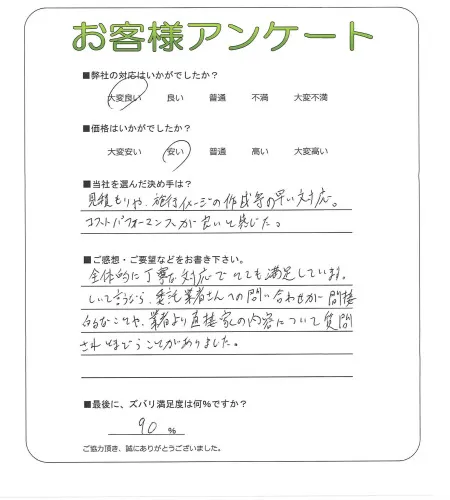 お客様アンケート
■弊社の対応はいかがでしたか？
大変良い 良い 普通 不満 大変不満
■価格はいかがでしたか？
大変安い 安い 普通 高い 大変高い
■当社を選んだ決め手は？
見積もりや、施行イメージの作成等の早い対応。
コストパフォーマンスが良いと感じた。
■ご感想・ご要望などをお書き下さい。
全体的に丁寧な対応でとても満足しています。
しいて言うなら、委託業者さんへの問い合わせが間接
的なことや、業者より直接家の内容について質問
されとまどうことがありました。
■最後に、ズバリ満足度は何%ですか？
90 %
ご協力頂き、誠にありがとうございました。